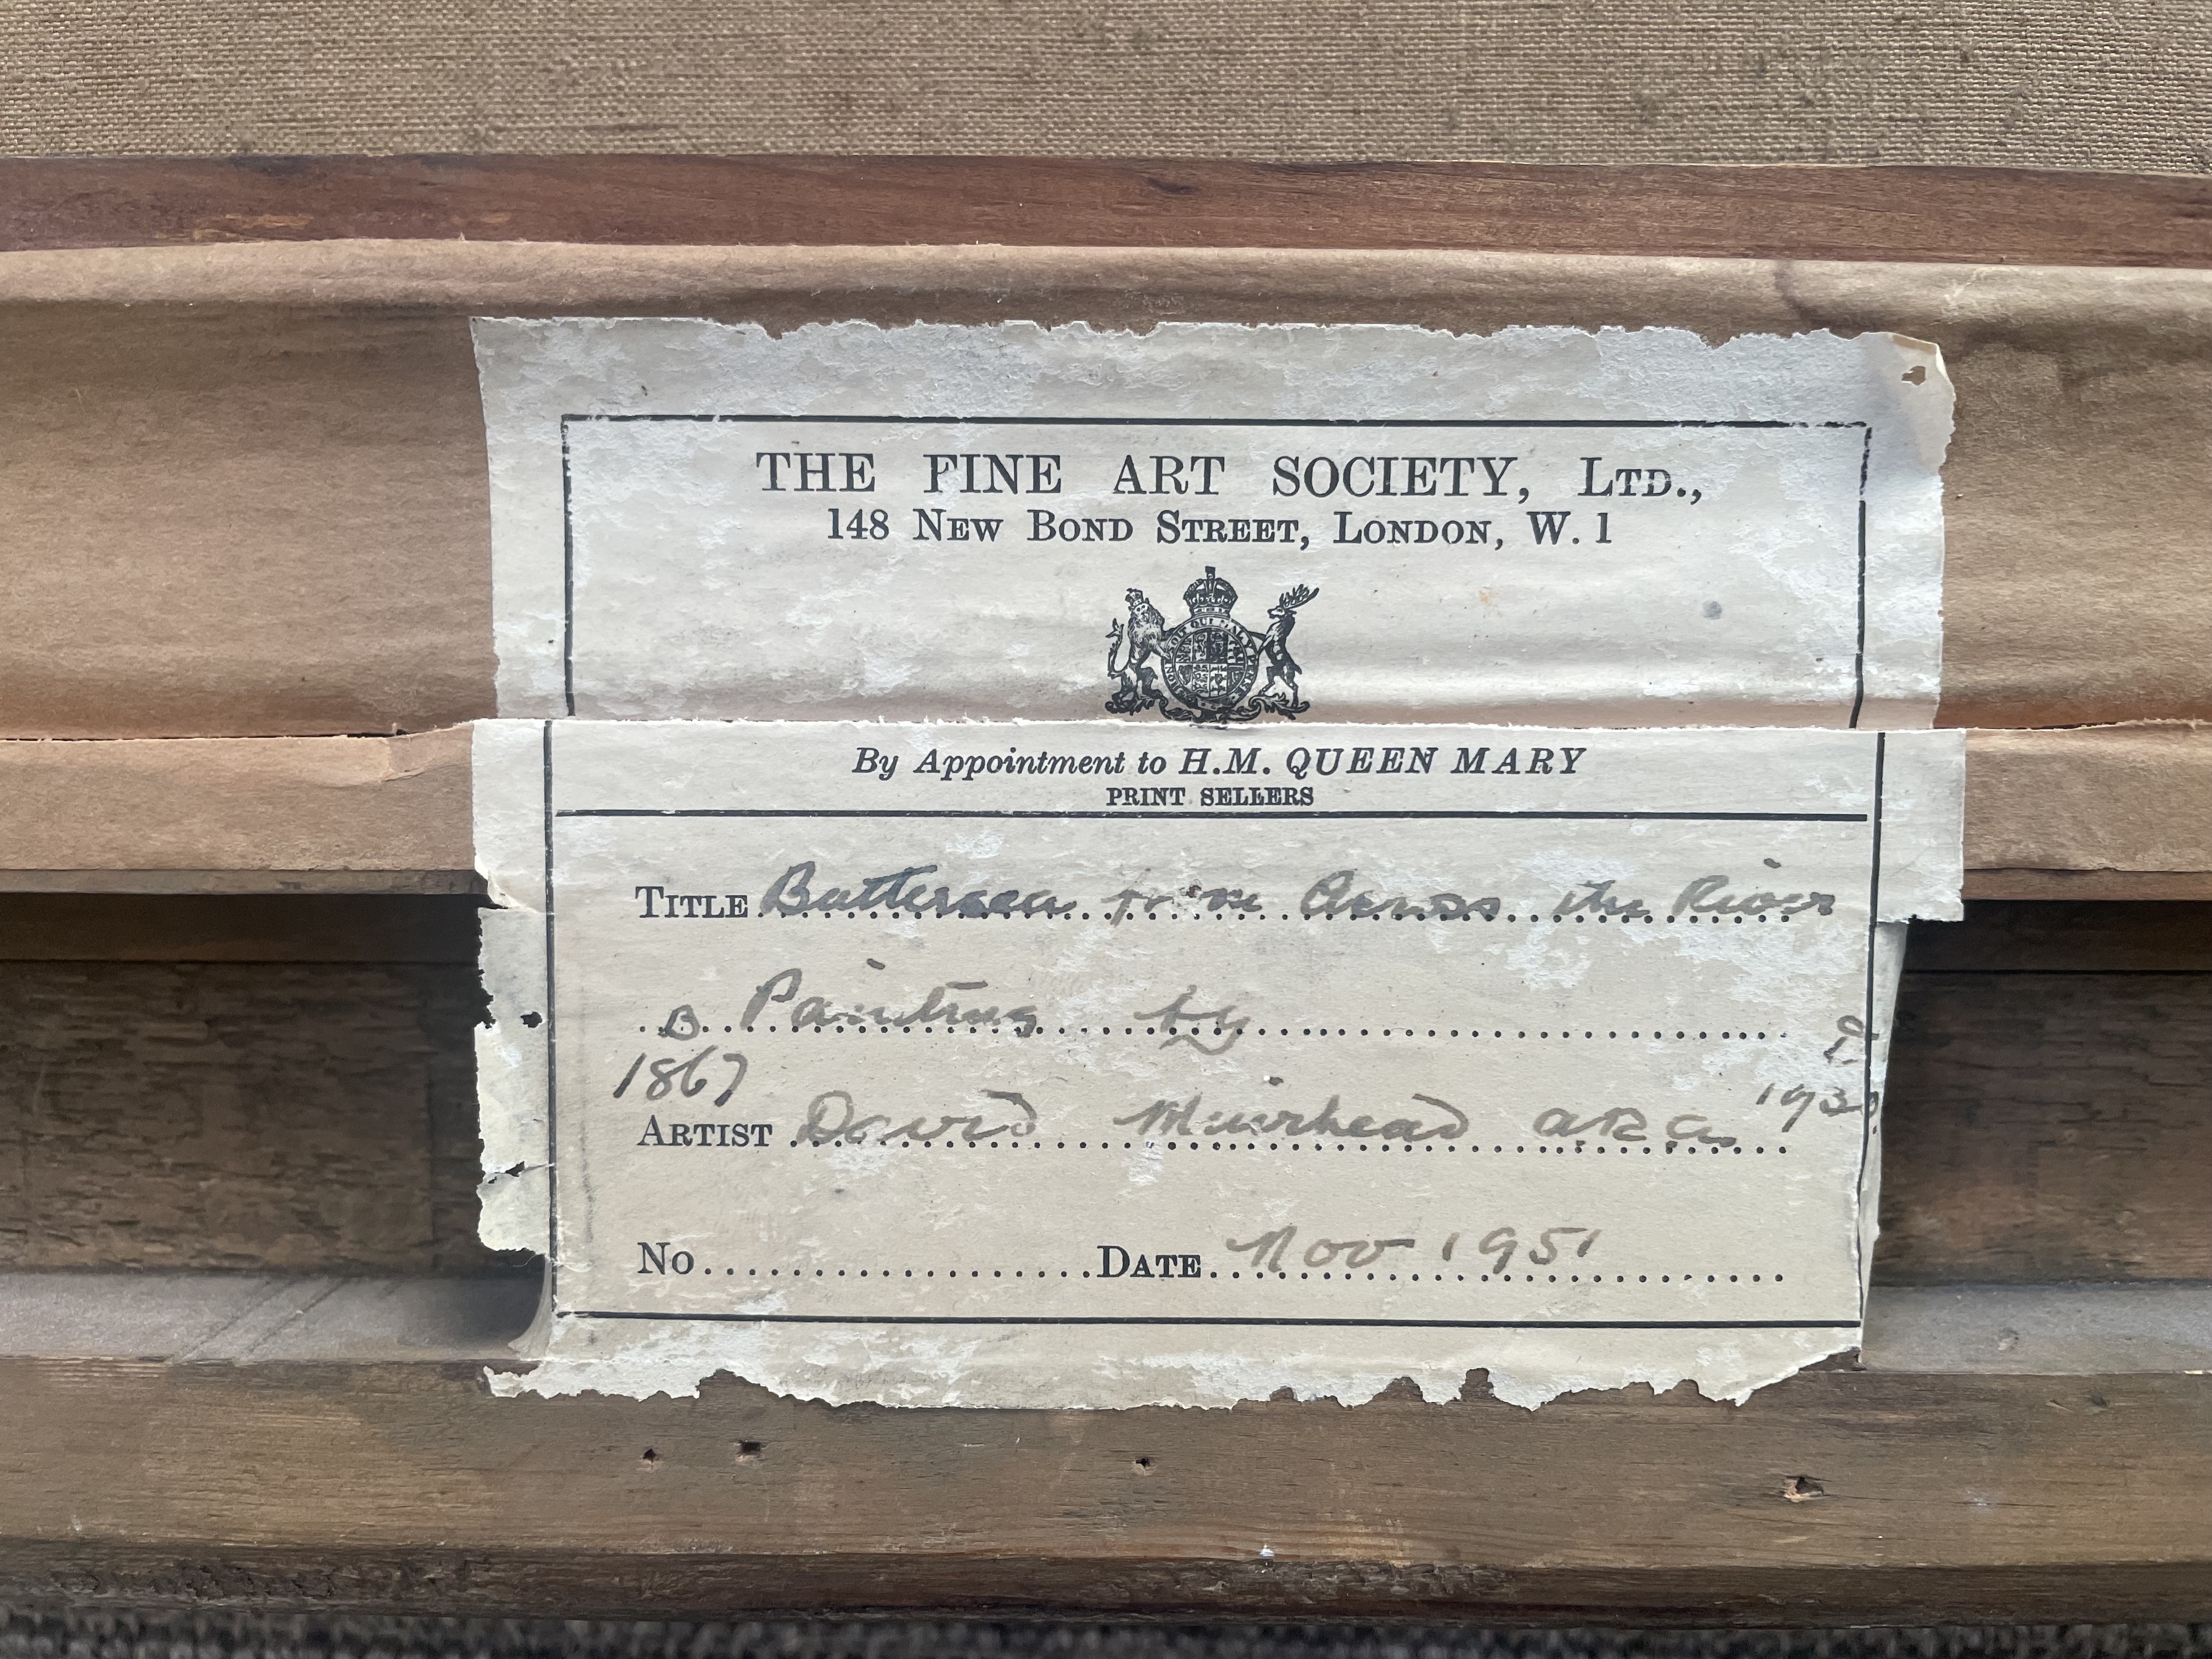 THE FINE ART SOCIETY, LTD.,
148 NEW BOND STREET, LONDON, W. 1
By Appointment to H.M. QUEEN MARY
PRINT SELLERS
TITLE Battersea from Across the River
Painting by
B 1867
D. 1930
ARTIST David Muirhead ARA
No DATE Nov 1951